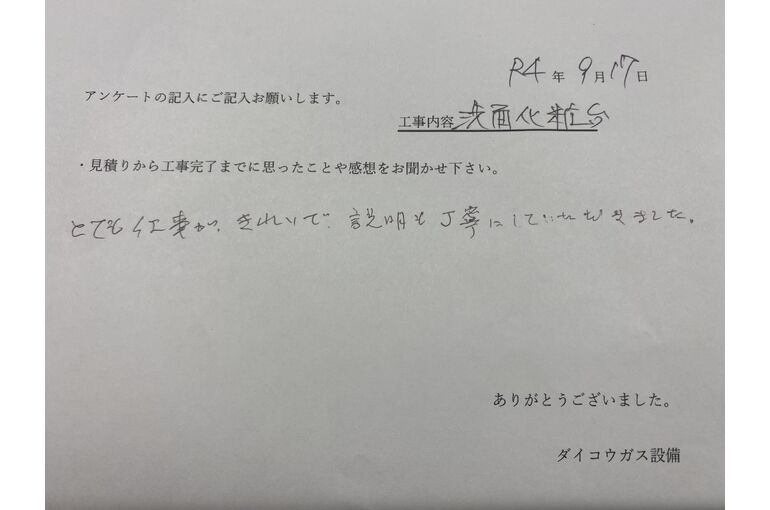 R4年9月17日
アンケートの記入にご記入お願いします。
工事内容 洗面化粧台
・見積りから工事完了までに思ったことや感想をお聞かせ下さい。
とても仕事が、きれいで、説明も丁寧にしていただきました。
ありがとうございました。
ダイコウガス設備